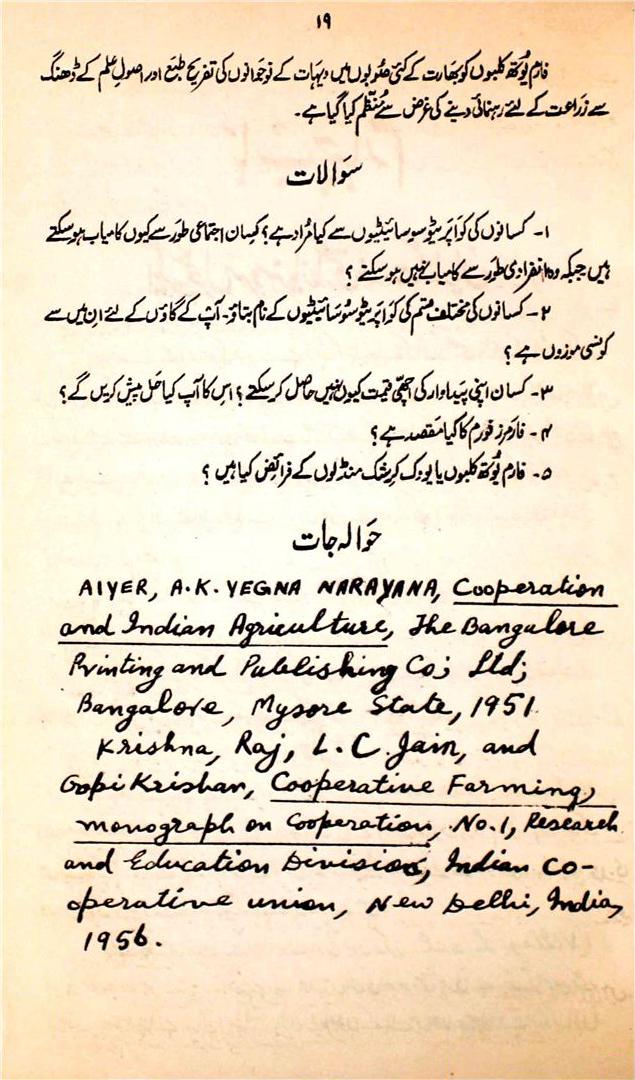 ۱۹
فارم یُوتھ کلبوں کو بھارت کے کئی صُوبوں میں دیہات کے نوجوانوں کی تفریح طبع اور اصولِ علم کے ڈھنگ
سے زراعت کے لئے رہنمائی دینے کی غرض سے مُنظّم کیا گیا ہے۔
سَوالات
۱۔ کسانوں کی کواپریٹو سوسائیٹیوں سے کیا مُراد ہے؟ کِسان اجتماعی طور سے کیوں کامیاب ہو سکتے
ہیں جبکہ وہ انفرادی طور سے کامیاب نہیں ہو سکتے؟
۲۔ کسانوں کی مختلف قسم کی کواپریٹو سُوسائیٹیوں کے نام بتاؤ۔ آپ کے گاؤں کے لئے ان میں سے
کونسی موزوں ہے؟
۳۔ کسان اپنی پیداوار کی اچھّی قیمت کیوں نہیں حاصل کر سکتے؟ اس کا آپ کیا حَل پیش کریں گے؟
۴۔ فارمرز فورم کا کیا مَقصد ہے؟
۵۔ فارم یُوتھ کلبوں یا یووک کرِشک منڈلوں کے فرائض کیا ہیں؟
حَوالہ جات
AIYER, A.K. YEGNA NARAYANA, Cooperation
and Indian Agriculture, The Bangalore
Printing and Publishing Co; Ltd;
Bangalore, Mysore State, 1951.
Krishna, Raj, L.C. Jain, and
Gopi Krishan, Cooperative Farming,
monograph on Cooperation, No.1, Research
and Education Division, Indian Co-
operative union, New Delhi, India,
1956.